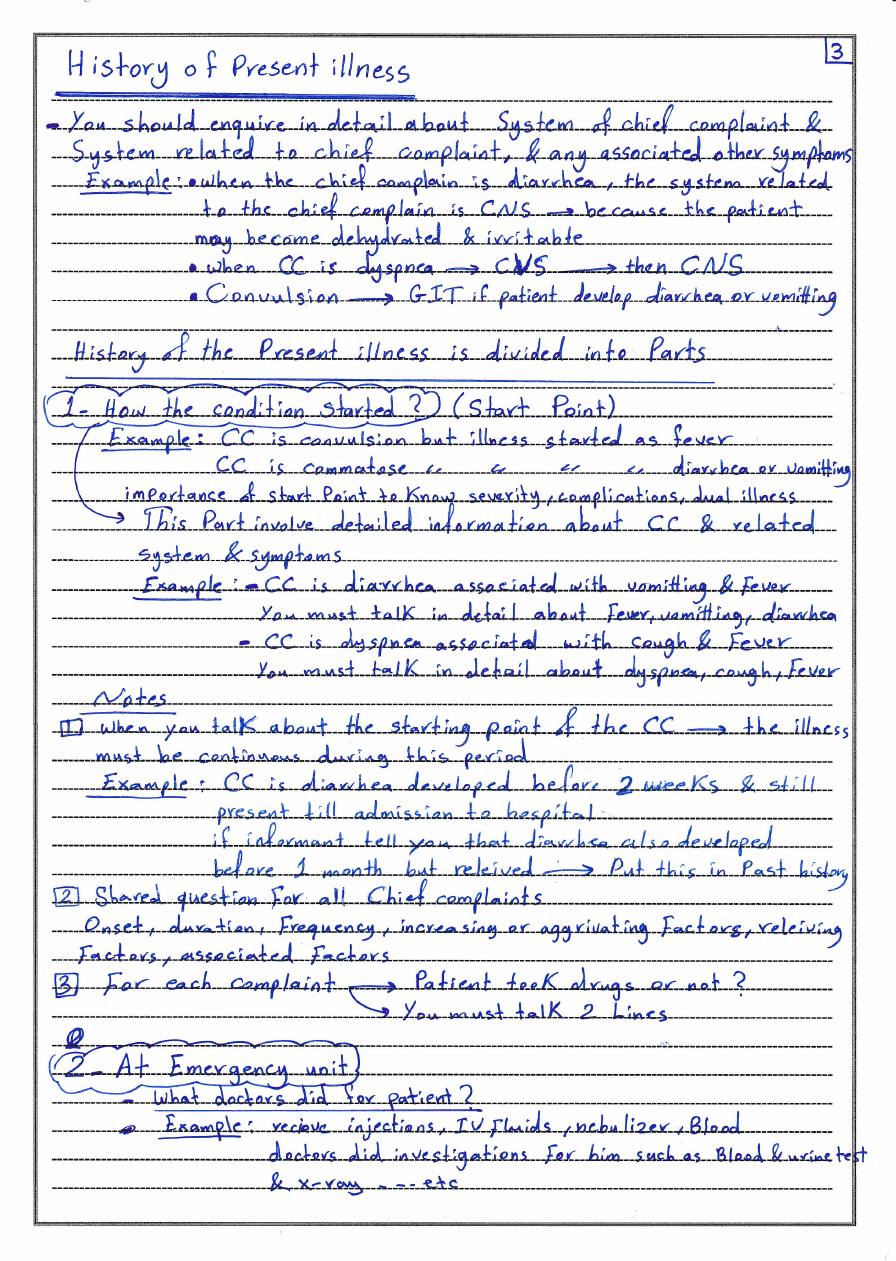 3
History of Present illness
- You should enquire in detail about System of chief complaint &
System related to chief complaint, & any associated other symptoms
Example: • when the chief complain is diarrhea, the system related
to the chief complain is CNS → because the patient
may become dehydrated & irritable
• when CC is dyspnea → CVS → then CNS
• Convulsion → GIT if patient develop diarrhea or vomitting
History of the Present illness is divided into Parts
1- How the condition started? (Start Point)
Example: CC is convulsion but illness started as fever
CC is commatose " " " " diarrhea or vomitting
importance of start Point to Know severity, complications, dual illness
→ This Part involve detailed information about CC & related
system & symptoms
Example: - CC is diarrhea associated with vomitting & Fever
You must talk in detail about Fever, vomitting, diarrhea
- CC is dyspnea associated with cough & Fever
You must talk in detail about dyspnea, cough, Fever
Notes
1 when you talk about the starting point of the CC → the illness
must be continuous during this period
Example: CC is diarrhea developed before 2 weeks & still
present till admission to hospital
if informant tell you that diarrhea also developed
before 1 month but releived → Put this in Past history
2 Shared question For all Chief complaints
Onset, duration, Frequency, increasing or aggrivating Factors, releiving
Factors, associated Factors
3 For each complaint → Patient took drugs or not?
→ You must talk 2 Lines
2- At Emergency unit
- What doctors did for patient?
• Example: recieve injections, IV Fluids, nebulizer, Blood
doctors did investigations For him such as Blood & urine test
& x-ray ---etc